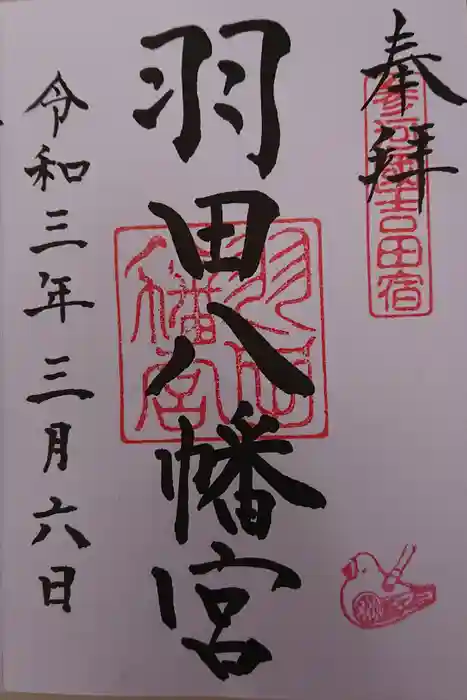 奉拝
参河國吉田宿
羽田八幡宮
羽田八幡宮
令和三年三月六日